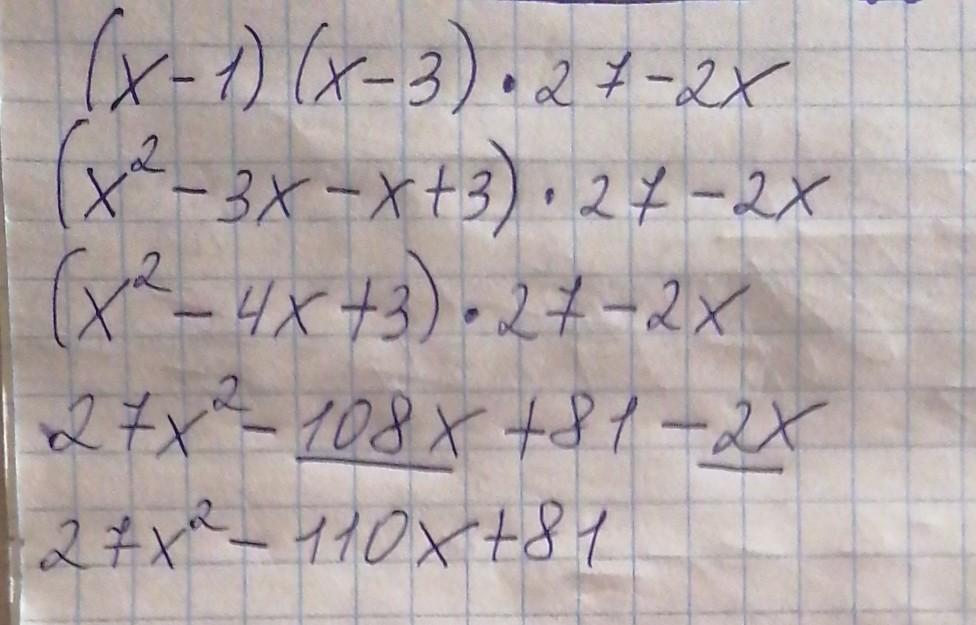 (x-1)(x-3)·27-2x
(x²-3x-x+3)·27-2x
(x²-4x+3)·27-2x
27x²-108x+81-2x
27x²-110x+81